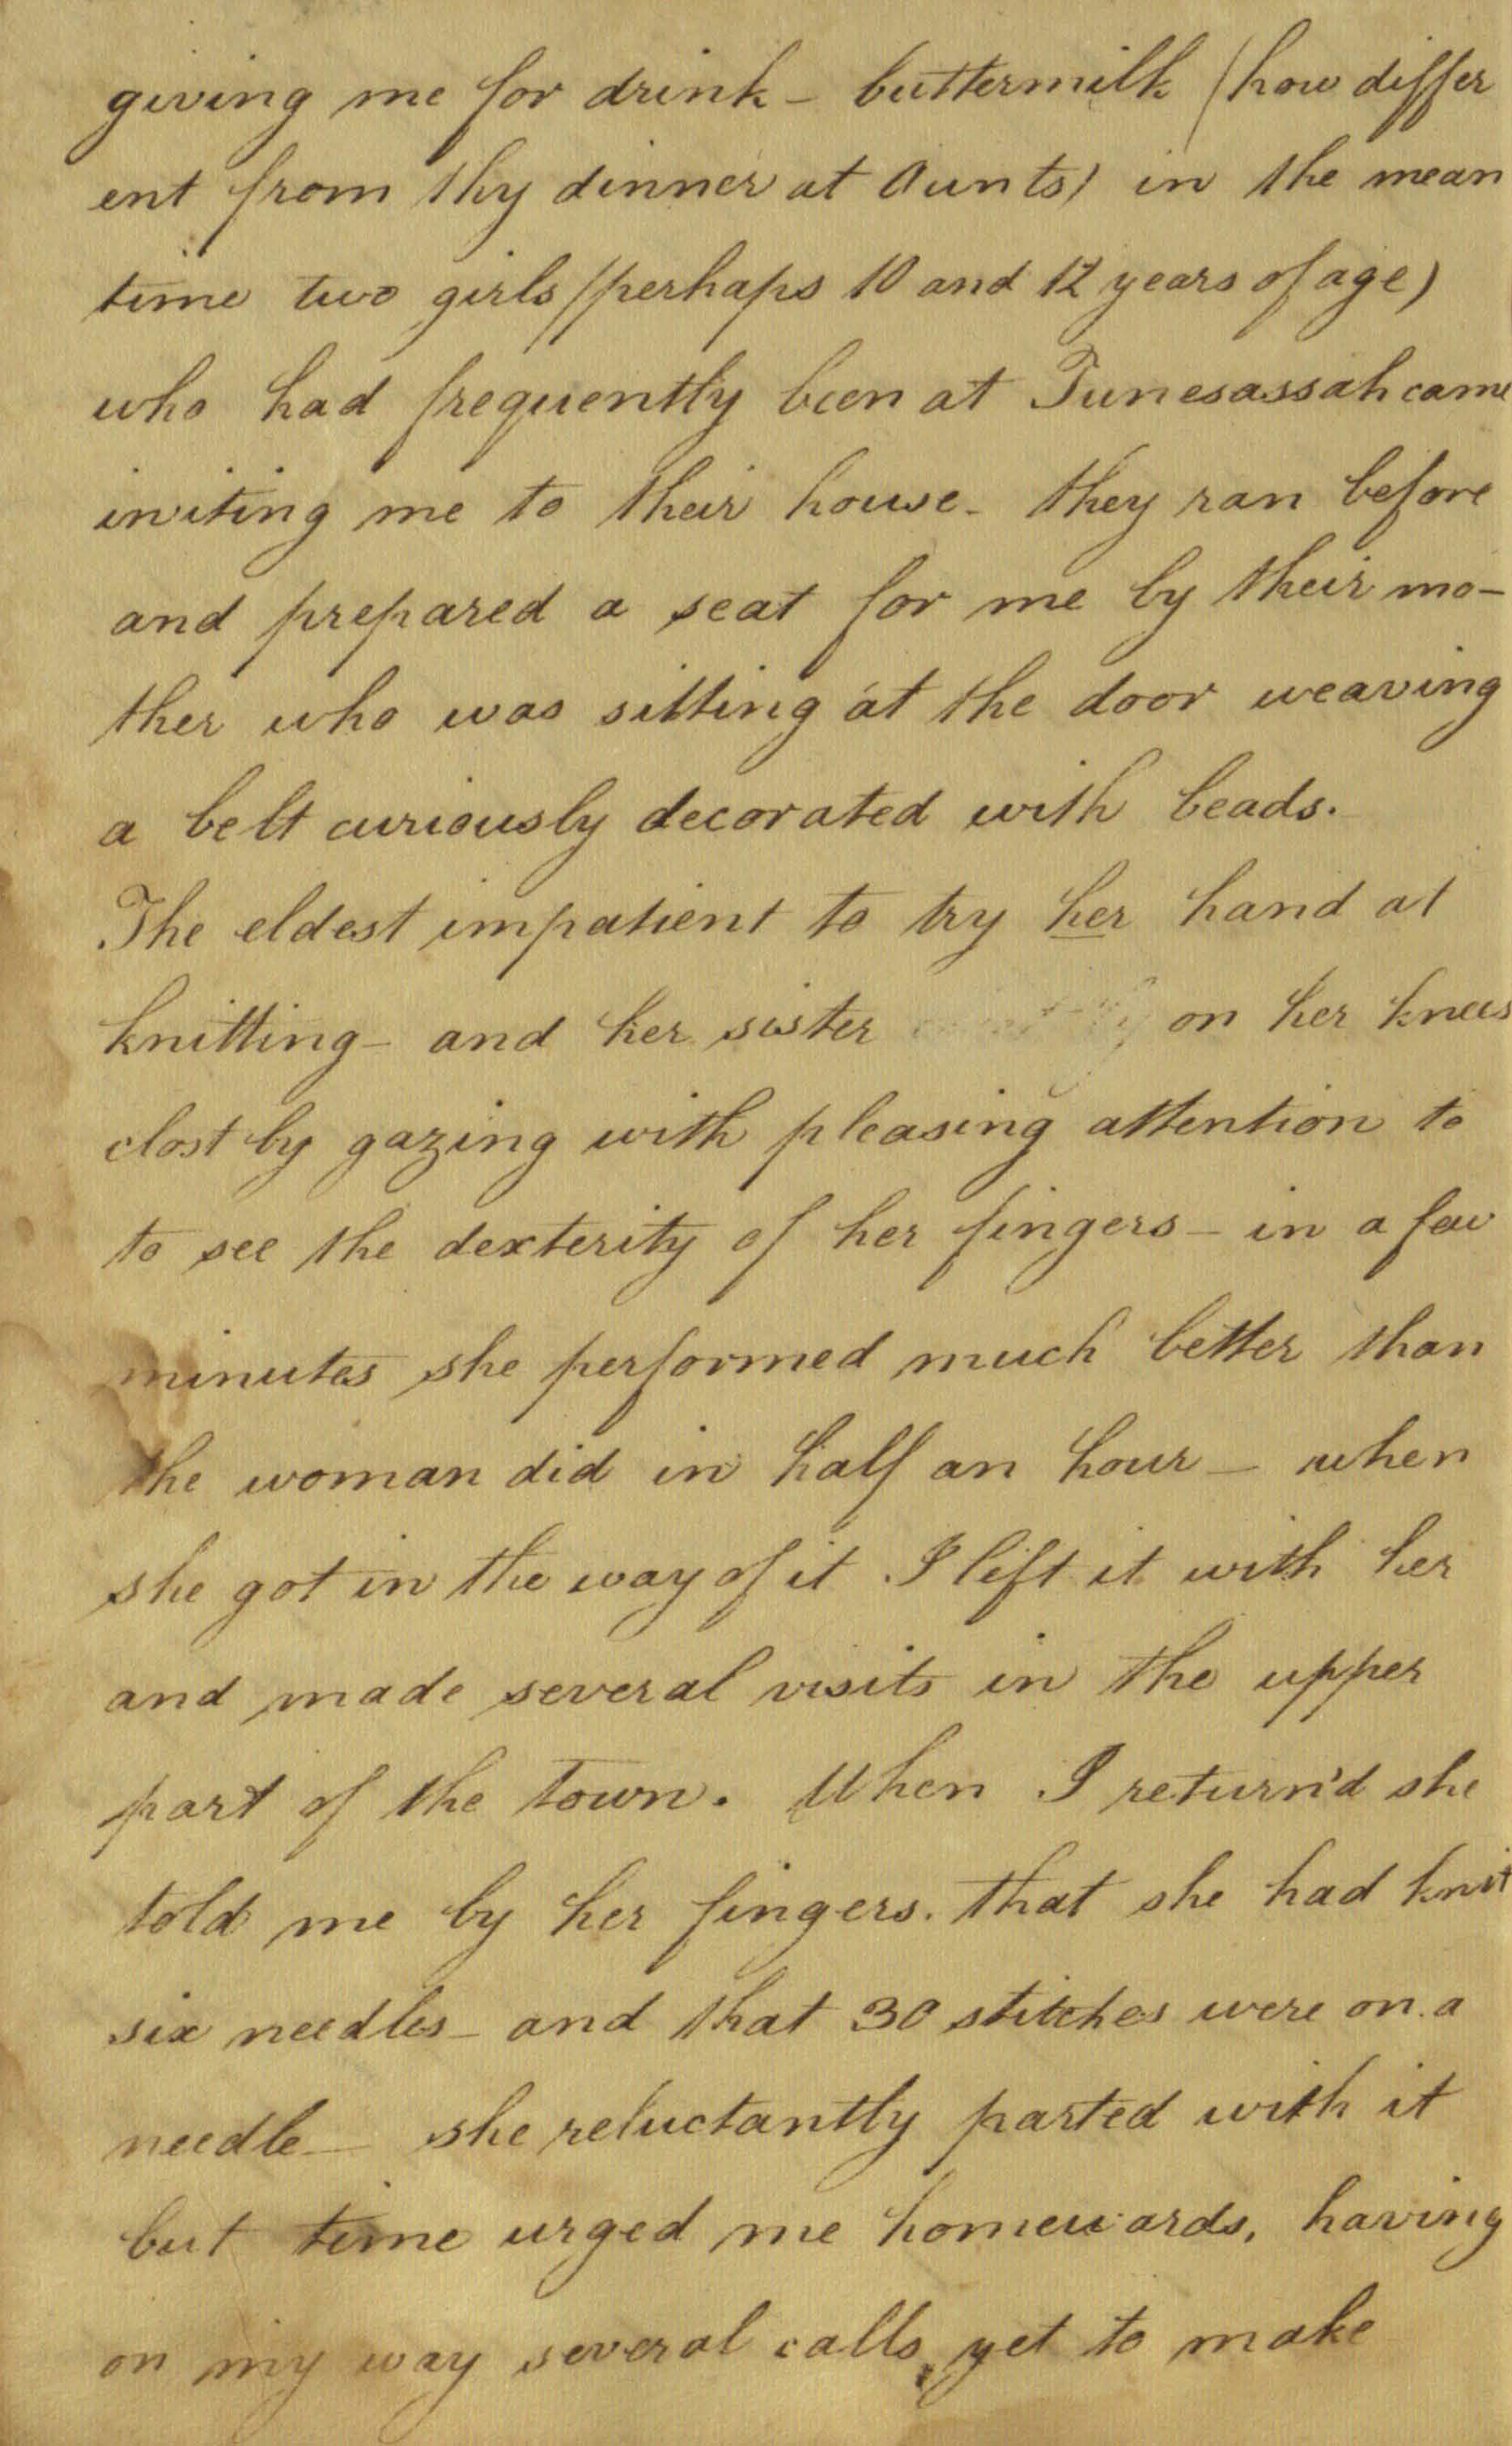 giving me for drink - buttermilk (how differ
ent from thy dinner at Aunts) in the mean
time two girls (perhaps 10 and 12 years of age)
who had frequently been at Tunesassah came
inviting me to their house - they ran before
and prepared a seat for me by their mo-
ther who was sitting at the door weaving
a belt curiously decorated with beads.
The eldest impatient to try her hand at
knitting - and her sister on her knees
clost by gazing with pleasing attention to
to see the dexterity of her fingers - in a few
minutes she performed much better than
the woman did in half an hour - when
she got in the way of it I left it with her
and made several visits in the upper
part of the town. When I return'd she
told me by her fingers. that she had knit
six needles - and that 30 stitches were on a
needle - she reluctantly parted with it
but time urged me homewards, having
on my way several calls, yet to make